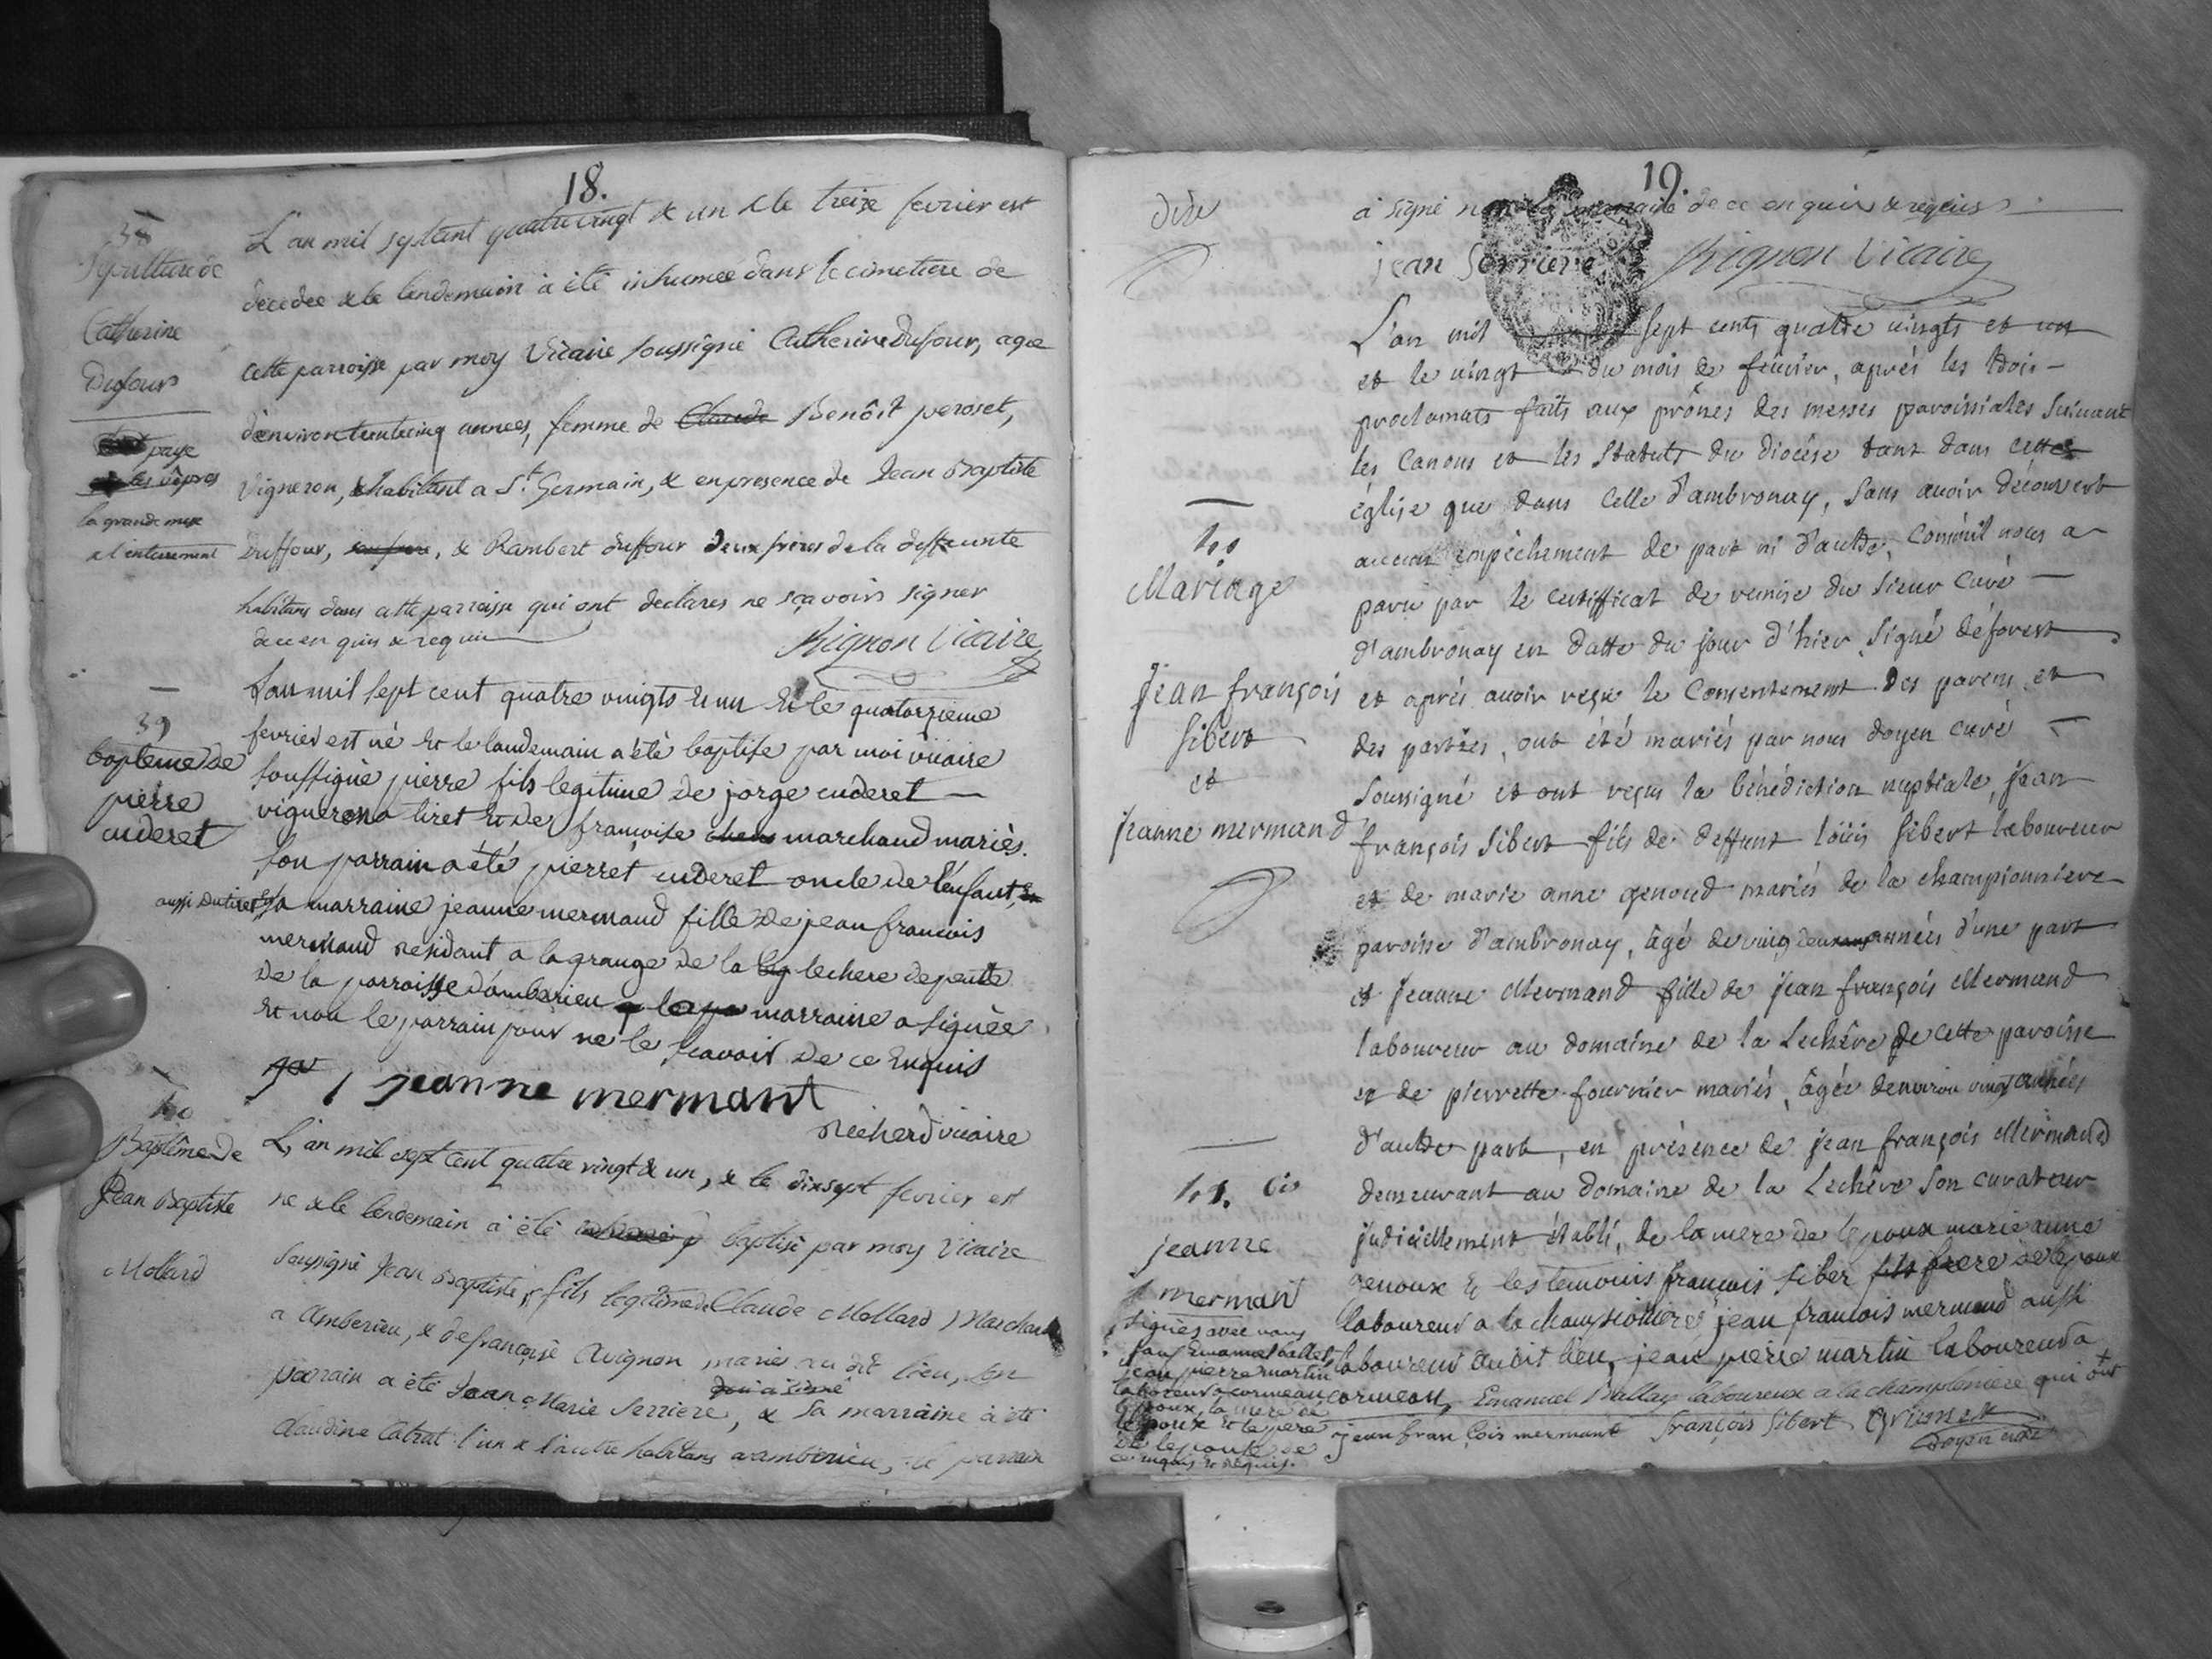 18.
38
Sepulture de
Catherine
Dufour
paye
les vêpres
la grande messe
& l'enterrement
L'an mil septcent quatre vingt & un & le treize fevrier est
decedée & le lendemain à été inhumée dans le cimetiere de
cette parroisse par moy Vicaire soussigné Catherine Dufour, agée
d'environ trentecinq années, femme de Claude Benôit peroset,
Vigneron, & habitant a St. Germain, & en presence de Jean Baptiste
Duffour, & Rambert duffour deux freres de la deffeunte
habitans dans cette parroisse qui ont declares ne sçavoir signer
de ce en quis & requis
Rignon Vicaire
39
bapteme de
pierre
cuderet
aussi du tiret
L'an mil sept cent quatre vingts et un et le quatorzieme
fevrier est né et le landemain a été baptise par moi vicaire
soussigné pierre fils legitime de jorge cuderet
vigneron a tiret et de françoise marchand mariés.
son parrain a été pierret cuderet oncle de l'enfant, et
sa marraine jeanne mermand fille de jean francois
mermand residant a la grange de la leg lechere depente
de la parroisse d'amberieu la marraine a signée
et non le parrain pour ne le scavoir de ce enquis
jeanne mermant
Richerd vicaire
40
Baptême de
Jean Baptiste
Mollard
L'an mil sept cent quatre vingt & un, & le dixsept fevrier est
ne & le lendemain à été baptisé par moy Vicaire
soussigné Jean Baptiste fils legitime de Claude Mollard Marchand
a Amberieu, & de françoise Avignon mariés au dit lieu, son
parrain a été Jean Marie Serriere, & sa marraine à été
qui a signé
Claudine Catrat l'un & l'autre habitans a amberieu, le parrain
19.
à signé non la marraine de ce enquis & requis
jean Serriere Rignon Vicaire
40
Mariage
jean françois
sibert
et
jeanne mermand
L'an mil sept cents quatre vingts et un
et le vingt du mois de fevrier, après les trois
proclamats faits aux prônes des messes paroissiales suivant
les Canons et les Statuts du diocèse tant dans cette
église que dans celle d'ambronay, sans avoir découvert
aucun empêchement de part ni d'autre, comm'il nous a
paru par le certifficat de remise du sieur Curé
d'ambronay en datte du jour d'hier signé déforest
et après avoir reçu le Consentement des parens et
des parties, ont été mariés par nous doyen curé
soussigné et ont reçu la bénédiction nuptiale, jean
françois sibert fils de deffunt loüis sibert laboureur
et de marie anne genoud mariés de la championniere
paroisse d'ambronay, âgé de ving deux ans années d'une part
et jeanne Mermand fille de jean françois Mermand
laboureur au domaine de la Lechère de cette paroisse
et de pierrette fournier mariés, âgée denviron vingt années
d'autre part, en présence de jean françois Mermand
demeurant au domaine de la Lechère son curateur
judiciellement établi, de la mere de lepoux marie anne
genoux et les temouis françois siber fils frere de lepoux
laboureur a la championiere jean francois mermand aussi
laboureur audit lieu, jean pierre martin laboureur a
cormeau, Emanuel Ballay laboureux a la championiere qui ont
41.
jeanne
mermant
signés avec nous
sauf Emanuel ballet
jean pierre martin
laboreur a cormeau
lepoux, la mere de
lepoux et le pere
de lepouse de
ce enquis et requis.
jean fran çois mermant françois Sibert
doyen curé